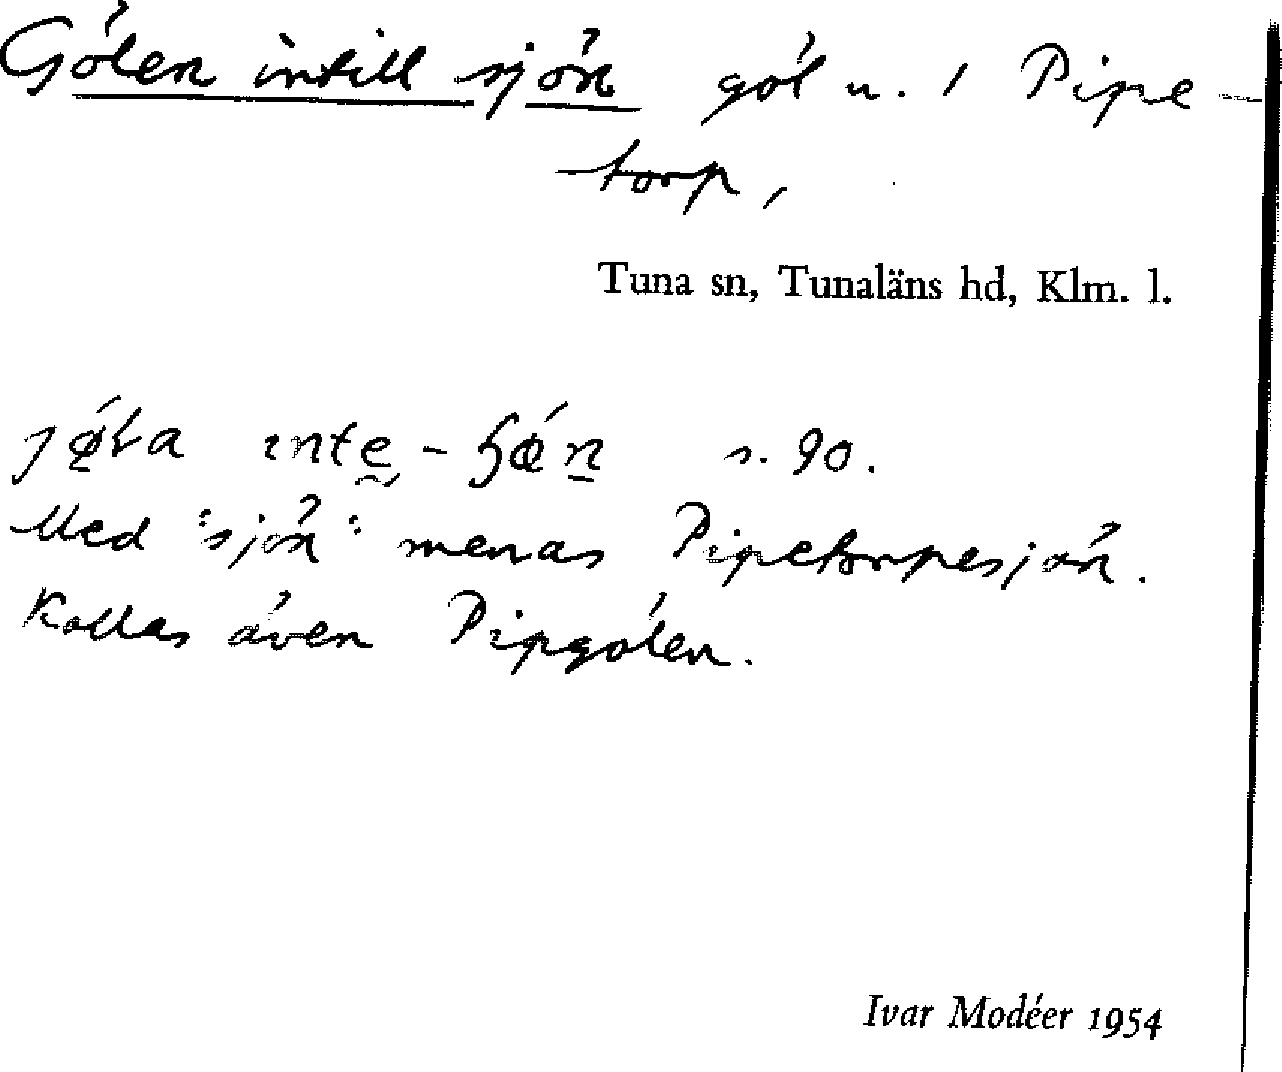 Gölen intill sjön göl u. 1 Pipe-
torp,
Tuna sn, Tunaläns hd, Klm. l.
s. 90.
Med "sjön" menas Pipetorpesjön.
Kallas även Pipgölen.
Ivar Modéer 1954